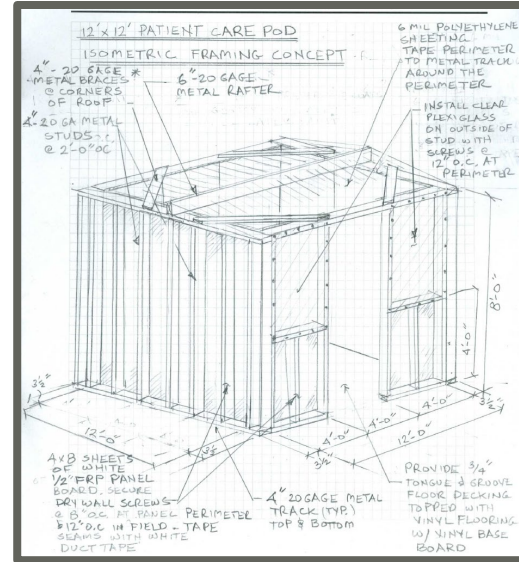 12'x12' PATIENT CARE POD
ISOMETRIC FRAMING CONCEPT
4"-20 GAGE *
METAL BRACES
@ CORNERS
OF ROOF
6"-20 GAGE
METAL RAFTER
4"-20 GA METAL
STUDS
@ 2'-0" OC
6 MIL POLYETHYLENE
SHEETING
TAPE PERIMETER
TO METAL TRACK
AROUND THE
PERIMETER
INSTALL CLEAR
PLEXIGLASS
ON OUTSIDE OF
STUD WITH
SCREWS @
12" O.C. AT
PERIMETER
8'-0"
4'-0"
3½"
12'-0"
3½"
3½"
4'-0"
4'-0"
4'-0"
3½"
12'-0"
4X8 SHEETS
OF WHITE
1/2" FRP PANEL
BOARD. SECURE
DRY WALL SCREWS
@ 8" O.C. AT PANEL PERIMETER
& 12" O.C IN FIELD - TAPE
SEAMS WITH WHITE
DUCT TAPE
4" 20 GAGE METAL
TRACK (TYP.)
TOP & BOTTOM
PROVIDE 3/4"
TONGUE & GROOVE
FLOOR DECKING
TOPPED WITH
VINYL FLOORING
W/ VINYL BASE
BOARD